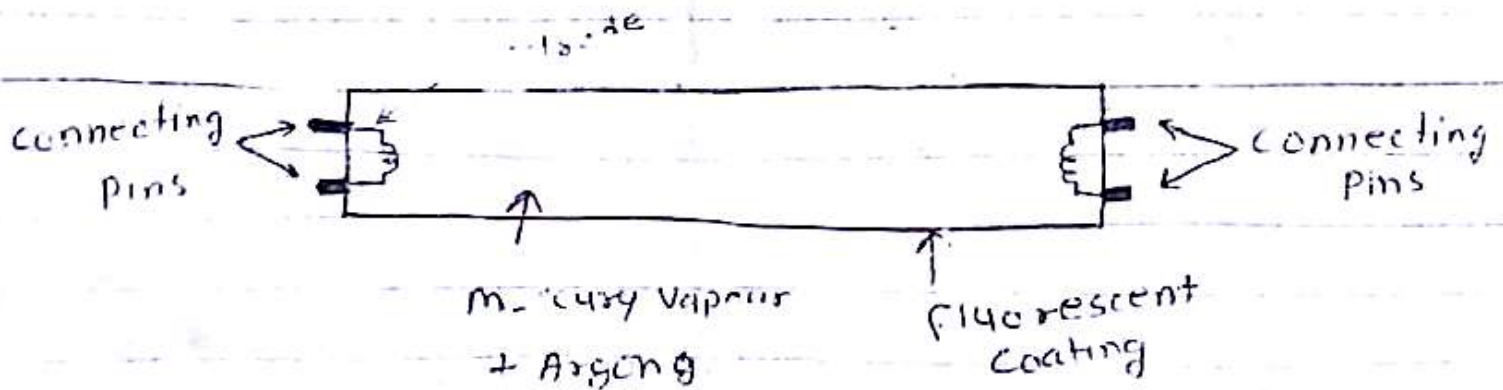 Connecting
Pins
Connecting
Pins
+ Argong
Fluorescent
Coating